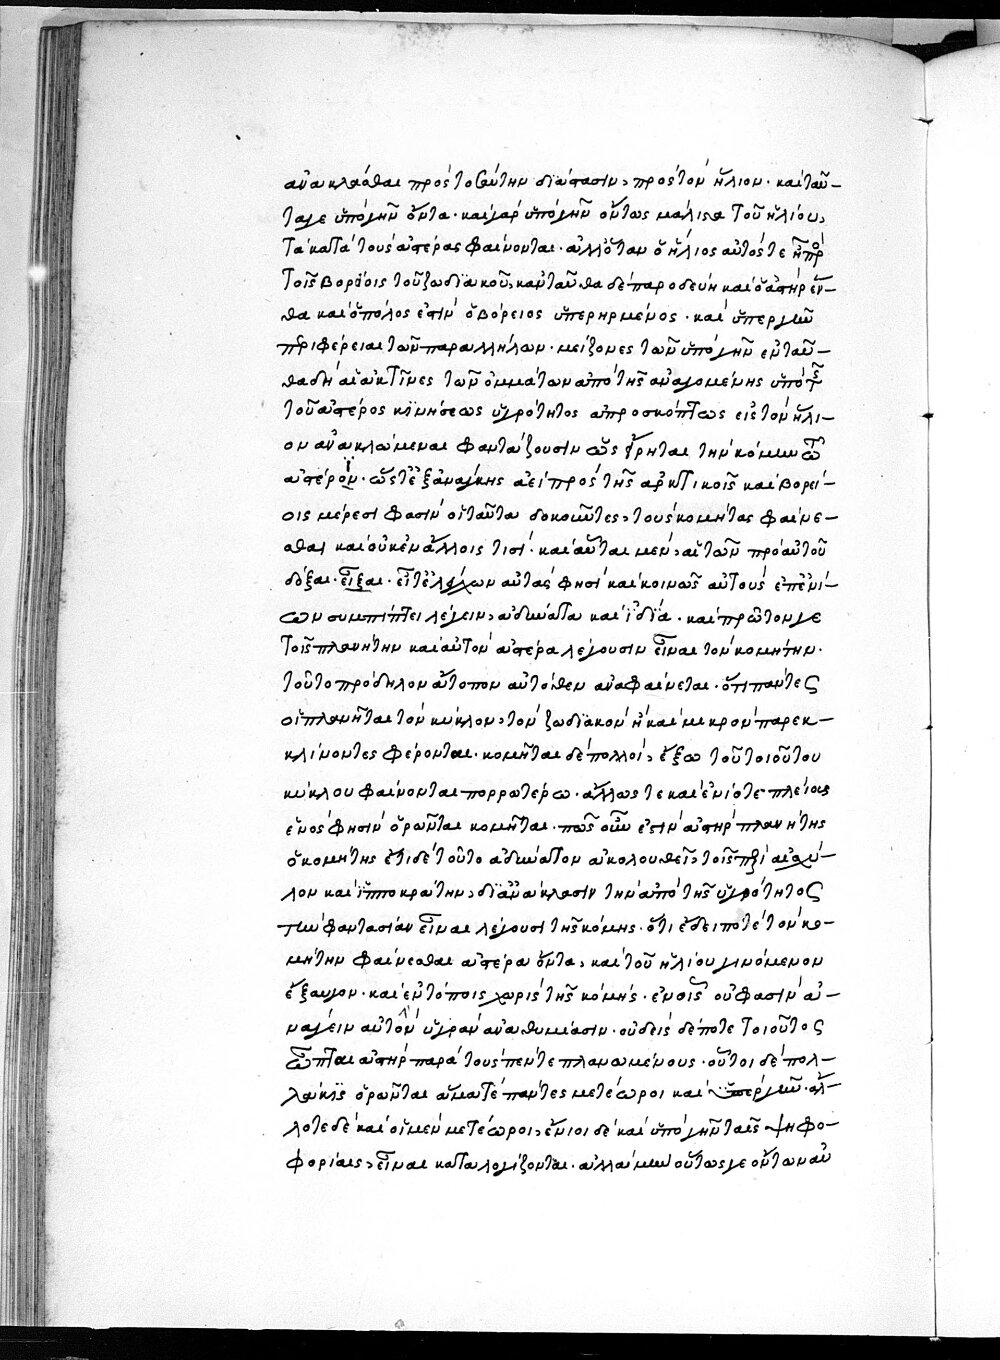 ἀνακλᾶσθαι πρὸς τοσαύτην διάστασιν, πρὸς τὸν ἥλιον· καὶ ταῦ-
τα γε ὑπὸ γῆν ὄντα· καὶ γὰρ ὑπὸ γῆν ὄντος μάλιστα τοῦ ἡλίου,
τὰ κατὰ τοὺς ἀστέρας φαίνονται· ἀλλ' ὅταν ὁ ἥλιος αὐτός τε ἦ πρὸ
τοῖς βορείοις τοῦ ζωδιακοῦ, κἀνταῦθα δὲ παροδεύη καὶ ὁ ἀστὴρ ἔν-
θα καὶ ὁ πόλος ἐστὶν ὁ βόρειος ὑπερηρμένος· καὶ ὑπὲρ γῆν
περιφέρειαι τῶν παραλλήλων· μείζονες τῶν ὑπὸ γῆν ἐνταῦ-
θα δὴ αἱ ἀκτῖνες τῶν ὀμμάτων ἀπὸ τῆς ἀναγομένης ὑπὸ τῆς
τοῦ ἀστέρος κινήσεως ὑγρότητος ἀπροσκόπτως εἰς τὸν ἥλι-
ον ἀνακλώμεναι φαντάζουσιν ὡς εἴρηται τὴν κόμην τῶν
ἀστέρων· ὥστε ἐξανάγκης ἀεὶ πρὸς τῆς ἀρκτικοῖς καὶ βορεί-
οις μέρεσι φασὶν οἱ ταῦτα δοκοῦντες, τοὺς κομήτας φαίνε-
σθαι καὶ οὐκ ἐν ἄλλοις τισί· καὶ αὗται μὲν, αἱ τῶν πρὸ αὐτοῦ
δόξαι· εἶξαι· εἶτ' ἐλέγχων αὐτάς φησὶ καὶ κοινῶς αὐτοὺς ἐπ' ἐνί-
ων συμπίπτει λέγειν, ἀδύνατα καὶ ἰδία· καὶ πρῶτον γε
τοῖς πλανήτην καὶ αὐτὸν ἀστέρα λέγουσιν εἶναι τὸν κομήτην·
τοῦτο πρόδηλον ἄτοπον αὐτόθεν ἀναφαίνεται· ὅτι πάντες
οἱ πλανῆται τὸν κύκλον, τὸν ζωδιακὸν ἢ καὶ μικρὸν παρεκ-
κλίνοντες φέρονται· κομῆται δὲ πολλοὶ, ἔξω τοῦ τοιούτου
κύκλου φαίνονται πορρωτέρω· ἄλλως τε καὶ ἐνίοτε πλείους
ἑνός φησὶν ὁρῶνται κομῆται· πῶς οὖν ἐστὶν ἀστὴρ πλανήτης
ὁ κομήτης ἔτι δὲ τοῦτο ἀδύνατον ἀκολουθεῖ, τοῖς περὶ αἰσχύ-
λον καὶ ἱπποκράτην, δι' ἀνάκλασιν τὴν ἀπὸ τῆς ὑγρότητος
τὴν φαντασίαν εἶναι λέγουσι τῆς κόμης· ὅτι ἔδει ποτὲ τὸν κο-
μήτην φαίνεσθαι ἀστέρα ὄντα, καὶ τοῦ ἡλίου γινόμενον
ἔξαυγον· καὶ ἐν τόποις χωρὶς τῆς κόμης· ἐν οἷς οὔ φασὶν ἀι-
ναγειν αὐτὸν ὑγρὰν ἀναθυμίασιν· οὐδεὶς δέποτε τοιοῦτος
ὦπται ἀστὴρ παρὰ τοὺς πέντε πλανωμένους· οὗτοι δὲ πολ-
λάκις ὁρῶνται ἅμα τὲ πάντες μετέωροι καὶ ὑπὲρ γῆν· ἄλ-
λοτε δὲ καὶ οἱ μὲν μετέωροι, ἔνιοι δὲ καὶ ὑπὸ γῆν ταῖς ψηφο-
φορίαις, εἶναι καταλογίζονται· ἀλλὰ μὴν οὕτως γε ὄντων αὐ